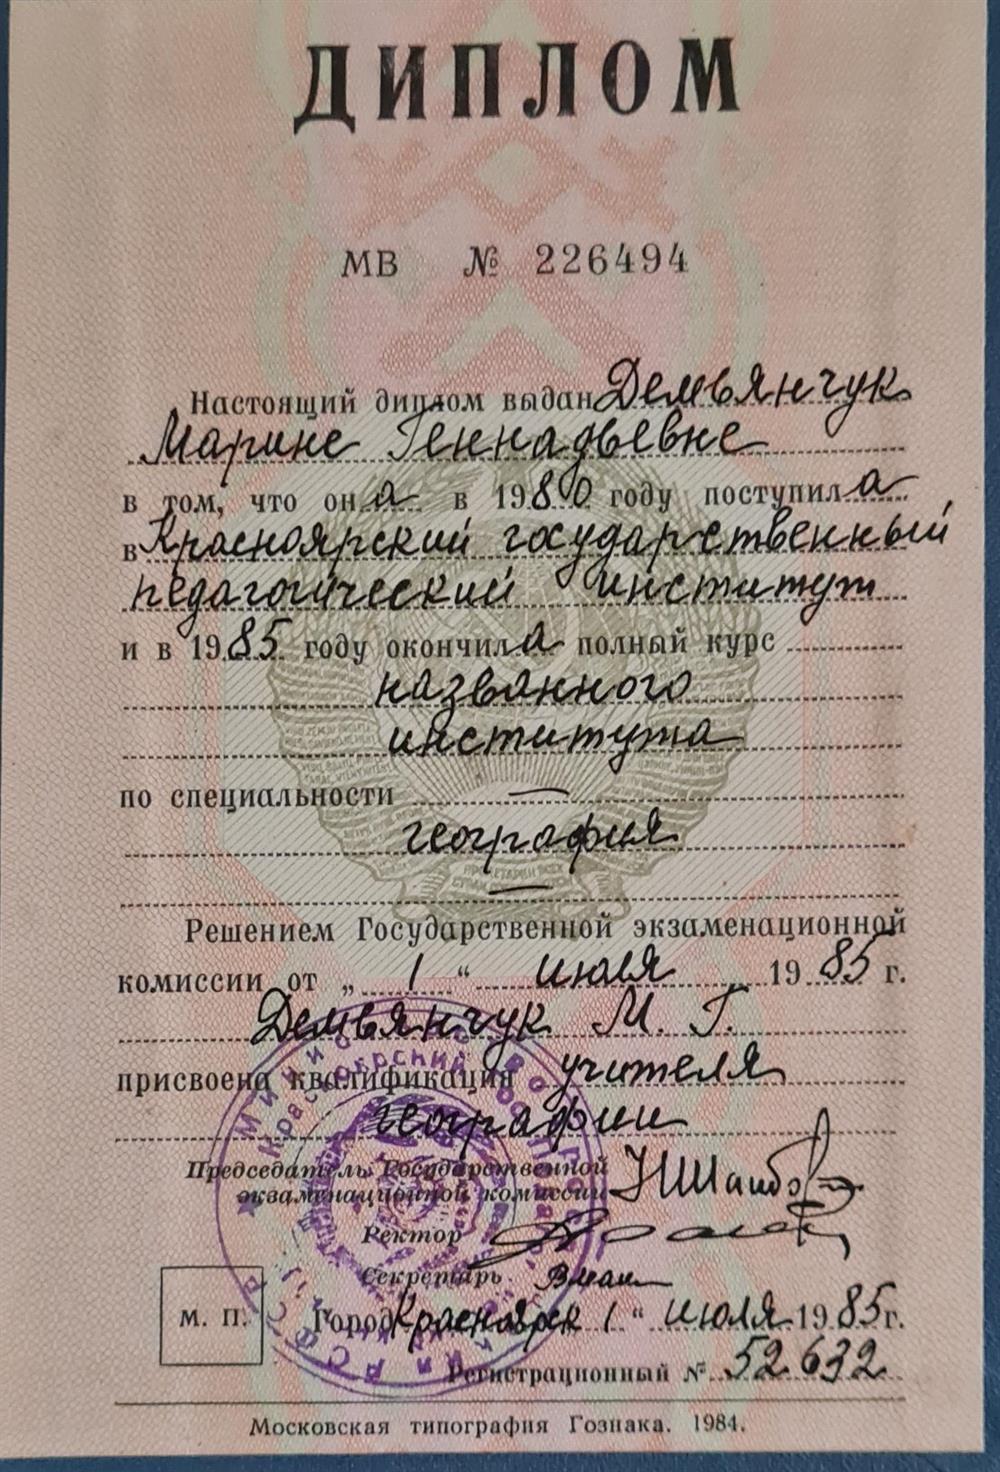 ДИПЛОМ
МВ № 226494
Настоящий диплом выдан Демьянчук
Марине Геннадьевне
в том, что она в 1980 году поступила
в Красноярский государственный
педагогический институт
и в 1985 году окончила полный курс
названного
института
по специальности —
география
—
Решением Государственной экзаменационной
комиссии от „ 1 “ июля 1985 г.
Демьянчук М. Г.
присвоена квалификация учителя
географии
Председатель Государственной
экзаменационной комиссии
Ректор
Секретарь
М. П.
Город Красноярск 1 “ июля 1985 г.
Регистрационный № 52632
Московская типография Гознака. 1984.